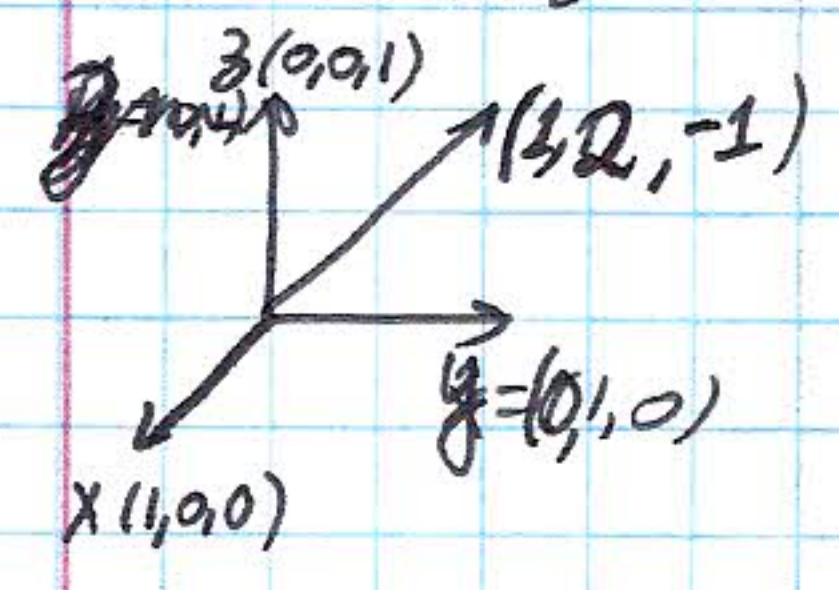 z(0,0,1)
(1,2,-1)
y=(0,1,0)
x(1,0,0)